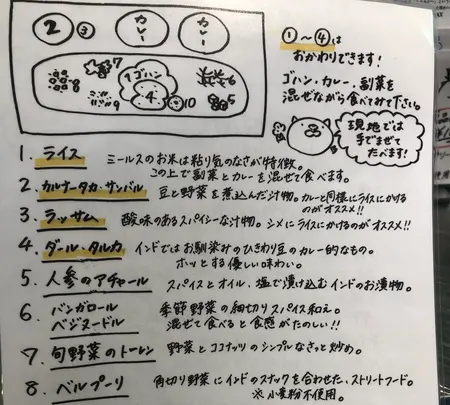 2 3 カレー カレー
7 1 ゴハン 6
8 9 4 10 5
①〜④は
おかわりできます!
ゴハン、カレー、副菜を
混ぜながら食べてみて下さい。
現地では
手でまぜて
たべます!
1. ライス ミールスのお米は粘り気のなさが特徴。
この上で副菜とカレーを混ぜて食べます。
2. カルナータカ・サンバル 豆と野菜を煮込んだ汁物。カレーと同様にライスにかける
のがオススメ!!
3. ラッサム 酸味のあるスパイシーな汁物。シメにライスにかけるのがオススメ!!
4. ダール・タルカ インドではお馴染みのひきわり豆のカレー的なもの。
ホッとする優しい味わい。
5 人参のアチャール スパイスとオイル、塩で漬け込むインドのお漬物。
6 バンガロール 季節野菜の細切りスパイス和え。
ベジヌードル 混ぜて食べると食感がたのしい!!
7 旬野菜のトーレン 野菜とココナッツのシンプルなさっと炒め。
8 ベルプーリ 角切り野菜にインドのスナックを合わせた、ストリートフード。
※小麦粉不使用。